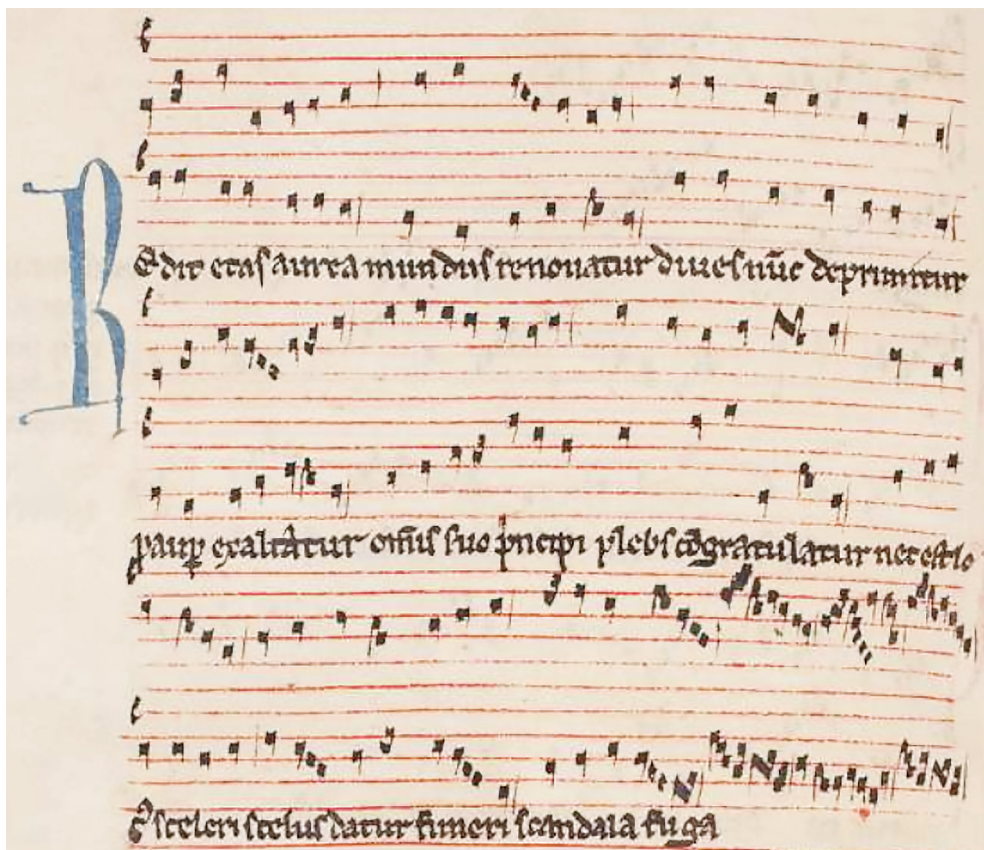 Redit etas aurea mundus renouatur diues nūc deprimitur
paup exaltatur omīs suo pncipi plebs cōgratulatur nec est lo
c sceleri scelus datur funeri scandala fuga